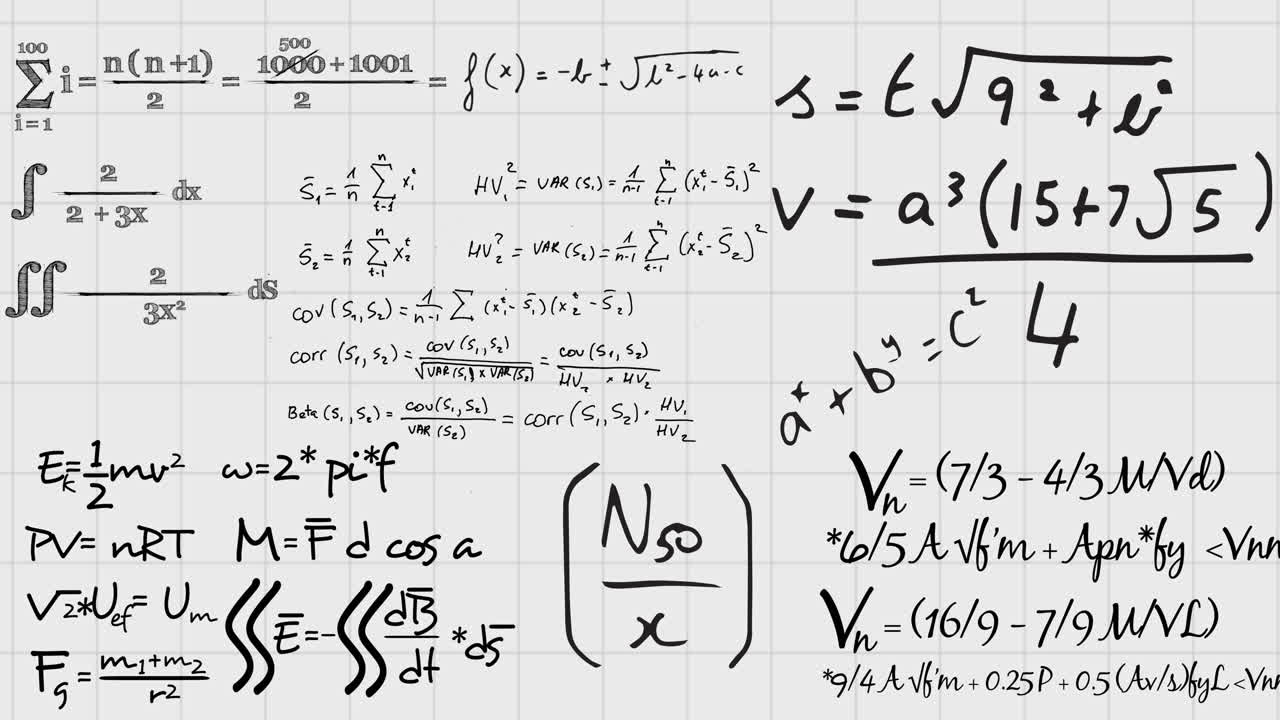 100
∑ i = n(n+1) / 2 = 500 1000 + 1001 / 2 =
i=1
f(x) = -b ± √b² - 4a·c
∫ 2 / 2 + 3x dx
∬ 2 / 3x² dS
S̄₁ = 1/n ∑ⁿₜ₋₁ xᵗ₁
HV₁² = VAR(S₁) = 1/n-1 ∑ⁿₜ₋₁ (xᵗ₁ - S̄₁)²
S̄₂ = 1/n ∑ⁿₜ₋₁ xᵗ₂
HV₂² = VAR(S₂) = 1/n-1 ∑ⁿₜ₋₁ (xᵗ₂ - S̄₂)²
cov(S₁,S₂) = 1/n-1 ∑ (xᵗ₁ - S̄₁)(xᵗ₂ - S̄₂)
corr (S₁,S₂) = cov(S₁,S₂) / √VAR(S₁) x VAR(S₂) = cov(S₁,S₂) / HV₂ x HV₂
Beta (S₁,S₂) = cov(S₁,S₂) / VAR(S₂) = corr(S₁,S₂) · HV₁/HV₂
s = t√
V = a³(15+7√5) / 4
= c²
Eₖ= 1/2 mv² ω=2* pi*f
PV= nRT M= F̄ d cos a
√2*U_ef= U_m
F_g = m₁+m₂ / r²
Ē=- dB̄/dt *ds̄
(N₅₀ / x)
Vₙ = (7/3 - 4/3 M/Vd)
*6/5 A √f'm + Apn*fy <Vnn
Vₙ = (16/9 - 7/9 M/VL)
*9/4 A √f'm + 0.25P + 0.5 (Av/s)fyL <Vnn